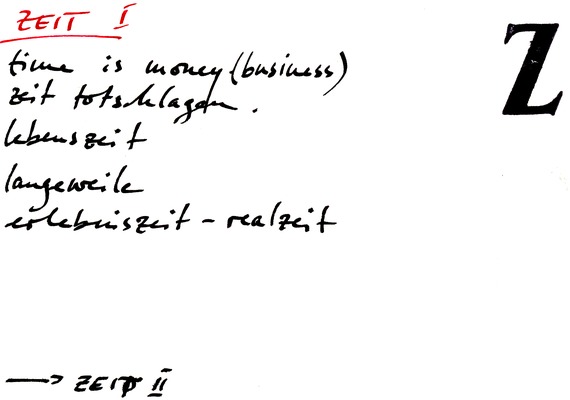 ZEIT I
Z
time is money (business)
zeit totschlagen.
lebenszeit
langeweile
erlebniszeit - realzeit
→ ZEIT II